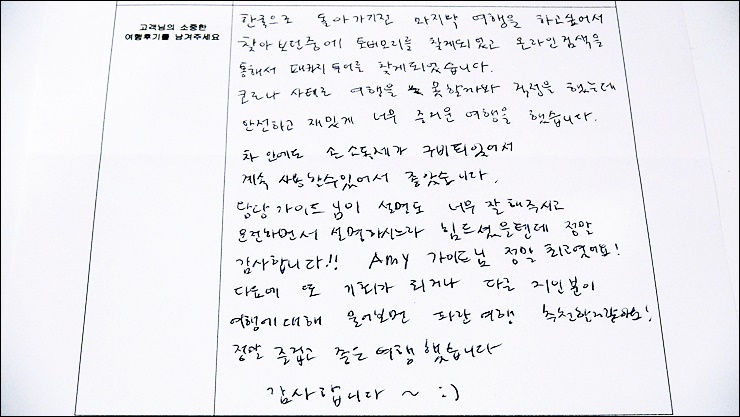 고객님의 소중한
여행후기를 남겨주세요
한국으로 돌아가기전 마지막 여행을 하고싶어서
찾아보던중에 토버모리를 찾게되었고 온라인검색을
통해서 패키지 투어를 찾게되었습니다.
코로나 사태로 여행을 못할까봐 걱정을 했는데
안전하고 재밌게 너무 즐거운 여행을 했습니다.
차 안에도 손 소독제가 구비되있어서
계속 사용할수있어서 좋았습니다.
담당 가이드님이 설명도 너무 잘해주시고
운전하면서 설명하시느라 힘드셨을텐데 정말
감사합니다!! Amy 가이드님 정말 최고였어요!
다음에 또 기회가 되거나 다른 지인분이
여행에대해 물어보면 파란여행 추천할거같아요!
정말 즐겁고 좋은 여행했습니다
감사합니다 ~ :)